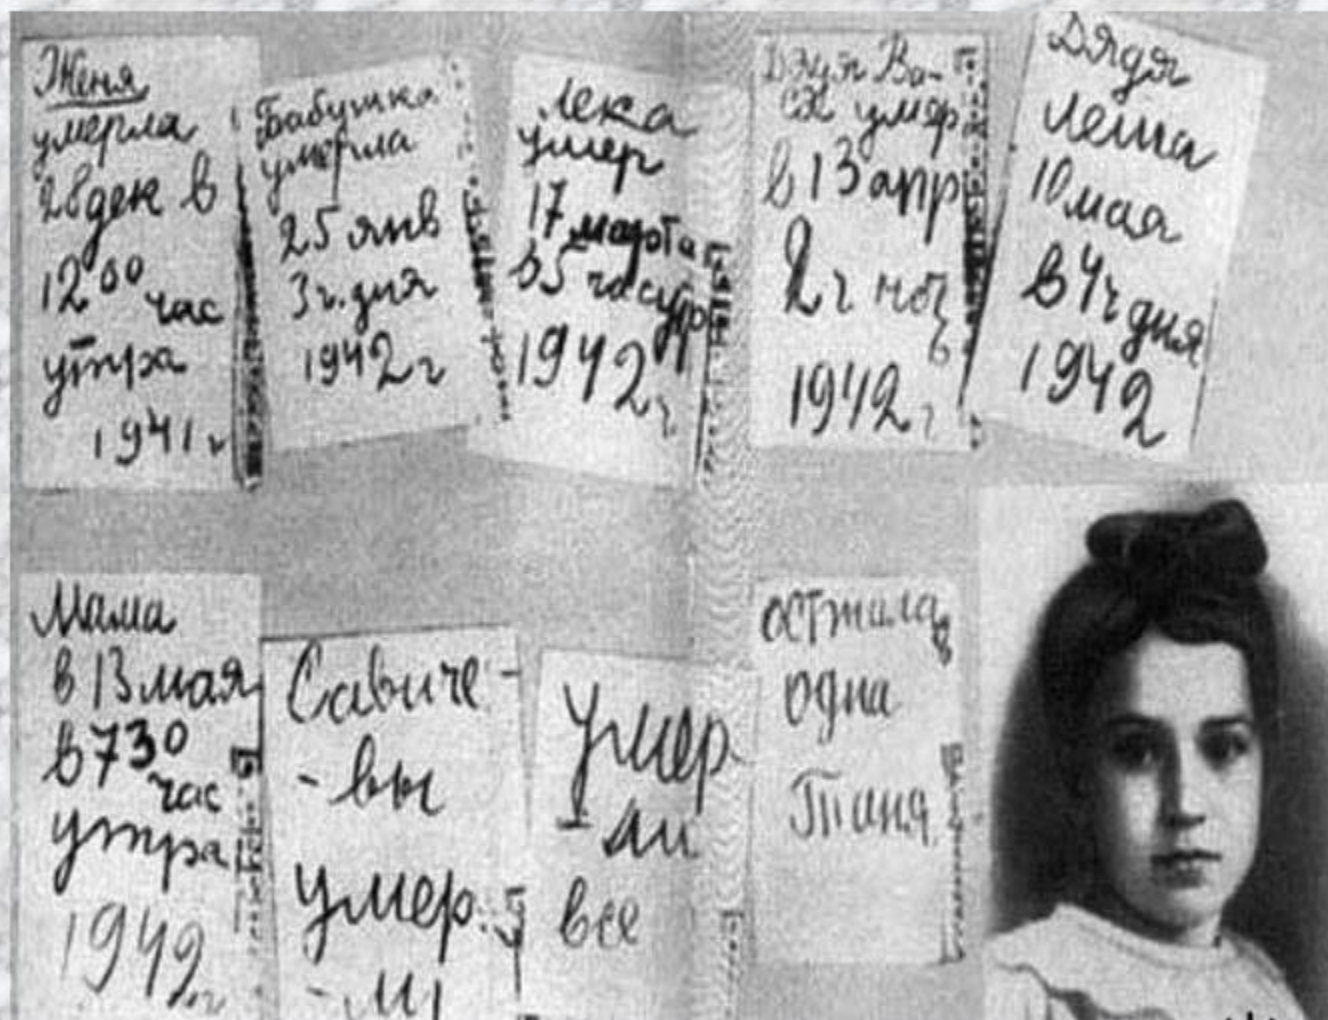 Женя
умерла
28 дек в
12 00 час
утра
1941 г
Бабушка
умерла
25 янв
3 ч. дня
1942 г
Лека
умер
17 марта
в 5 час утр
1942 г
Дядя Ва-
ся умер
в 13 апр
2 ч ноч
1942 г
Дядя
Леша
10 мая
в 4 ч дня
1942
Мама
в 13 мая
в 7 30 час
утра
1942 г
Савиче-
-вы
умер
-ли
Умер
-ли
все
осталась
одна
Таня